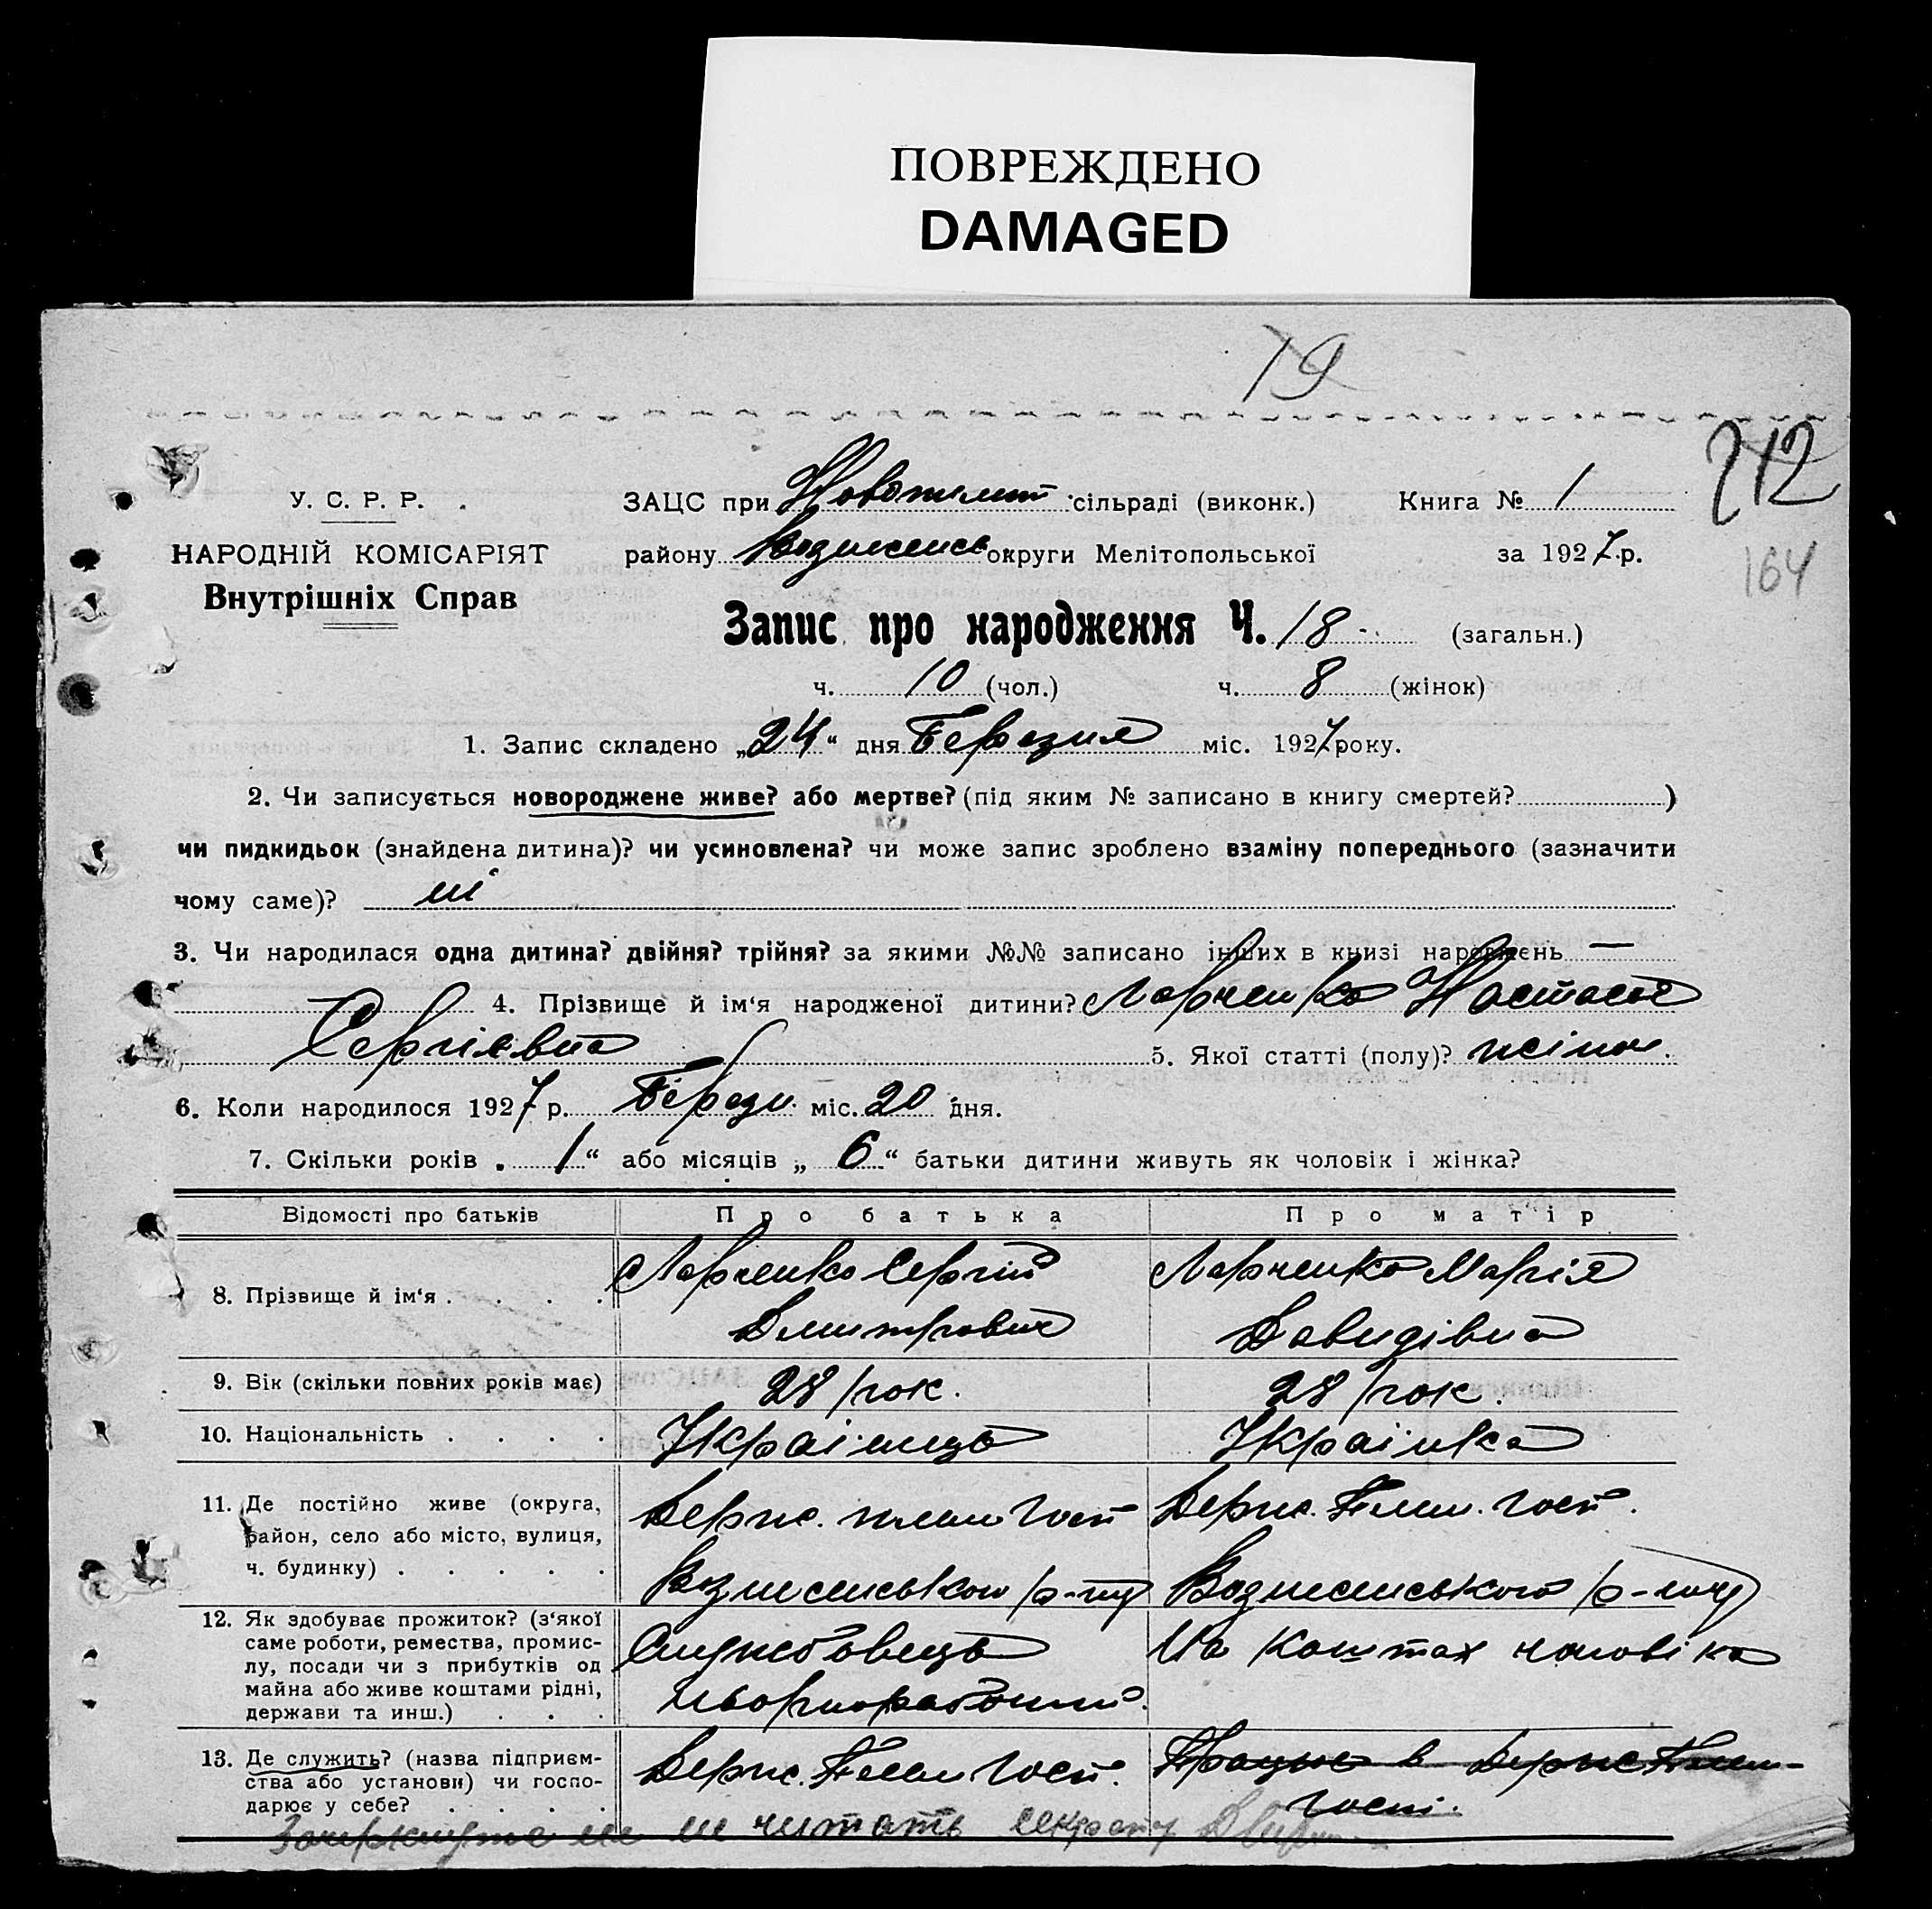 ПОВРЕЖДЕНО
DAMAGED
19
212
У. С. Р. Р.
ЗАЦС при сільраді (виконк.) Книга № 1
НАРОДНІЙ КОМІСАРІЯТ
району Вознесенсь округи Мелітопольської за 1927 р.
164
Внутрішніх Справ
Запис про народження Ч. 18 (загальн.)
ч. 10 (чол.) ч. 8 (жінок)
1. Запис складено „24“ дня Березня міс. 1927 року.
2. Чи записується новороджене живе? або мертве? (під яким № записано в книгу смертей? )
чи пидкидьок (знайдена дитина)? чи усиновлена? чи може запис зроблено взаміну попереднього (зазначити
чому саме)? ні
3. Чи народилася одна дитина? двійня? трійня? за якими №№ записано інших в книзі народжень —
4. Прізвище й ім‘я народженої дитини? Ларченко Настасья
Сергієвна 5. Якої статті (полу)? жіноч.
6. Коли народилося 1927 р. Березн. міс. 20 дня.
7. Скільки років „1“ або місяців „6“ батьки дитини живуть як чоловік і жінка?
Відомості про батьків Про батька Про матір
8. Прізвище й ім‘я . . . . Ларченко Сергій Ларченко Марія
Дмитрович Давидівна
9. Вік (скільки повних років має) 28 рок. 28 рок.
10. Національність . . . . Украінець Украінка
11. Де постійно живе (округа, Держ. плем Госп Держ. Плем. Госп.
район, село або місто, вулиця,
ч. будинку) . . . . . Вознесенського р-ну Вознесенського р-ну
12. Як здобуває прожиток? (з‘якої
саме роботи, ремества, промис- Службовець На коштах чоловіка
лу, посади чи з прибутків од
майна або живе коштами рідні, чворнорабочий.
держави та инш.) . . .
13. Де служить? (назва підприєм- Держ. Плем Госп. Працює в Держ Плем-
ства або установи) чи госпо- госпі.
дарює у себе? . . . .
Зачеркнуте не читать секрет